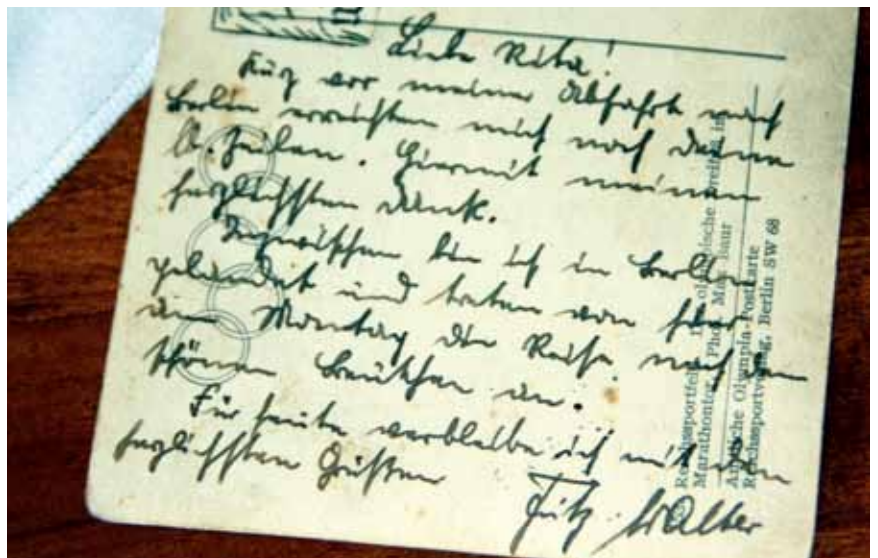 Liebe Rita!
Kurz vor meiner Abfahrt nach
Berlin erreichten mich noch deine
Zeilen. Hiermit meinen
herzlichsten Dank.
Inzwischen bin ich in Berlin
gelandet und treten von hier
am Montag die Reise nach dem
schönen Beuthen an.
Für heute verbleibe ich mit den
herzlichsten Grüßen
Fritz Walter
Marathontor, Phot. Max Baur
Amtliche Olympia-Postkarte
Reichssportverlag, Berlin SW 68